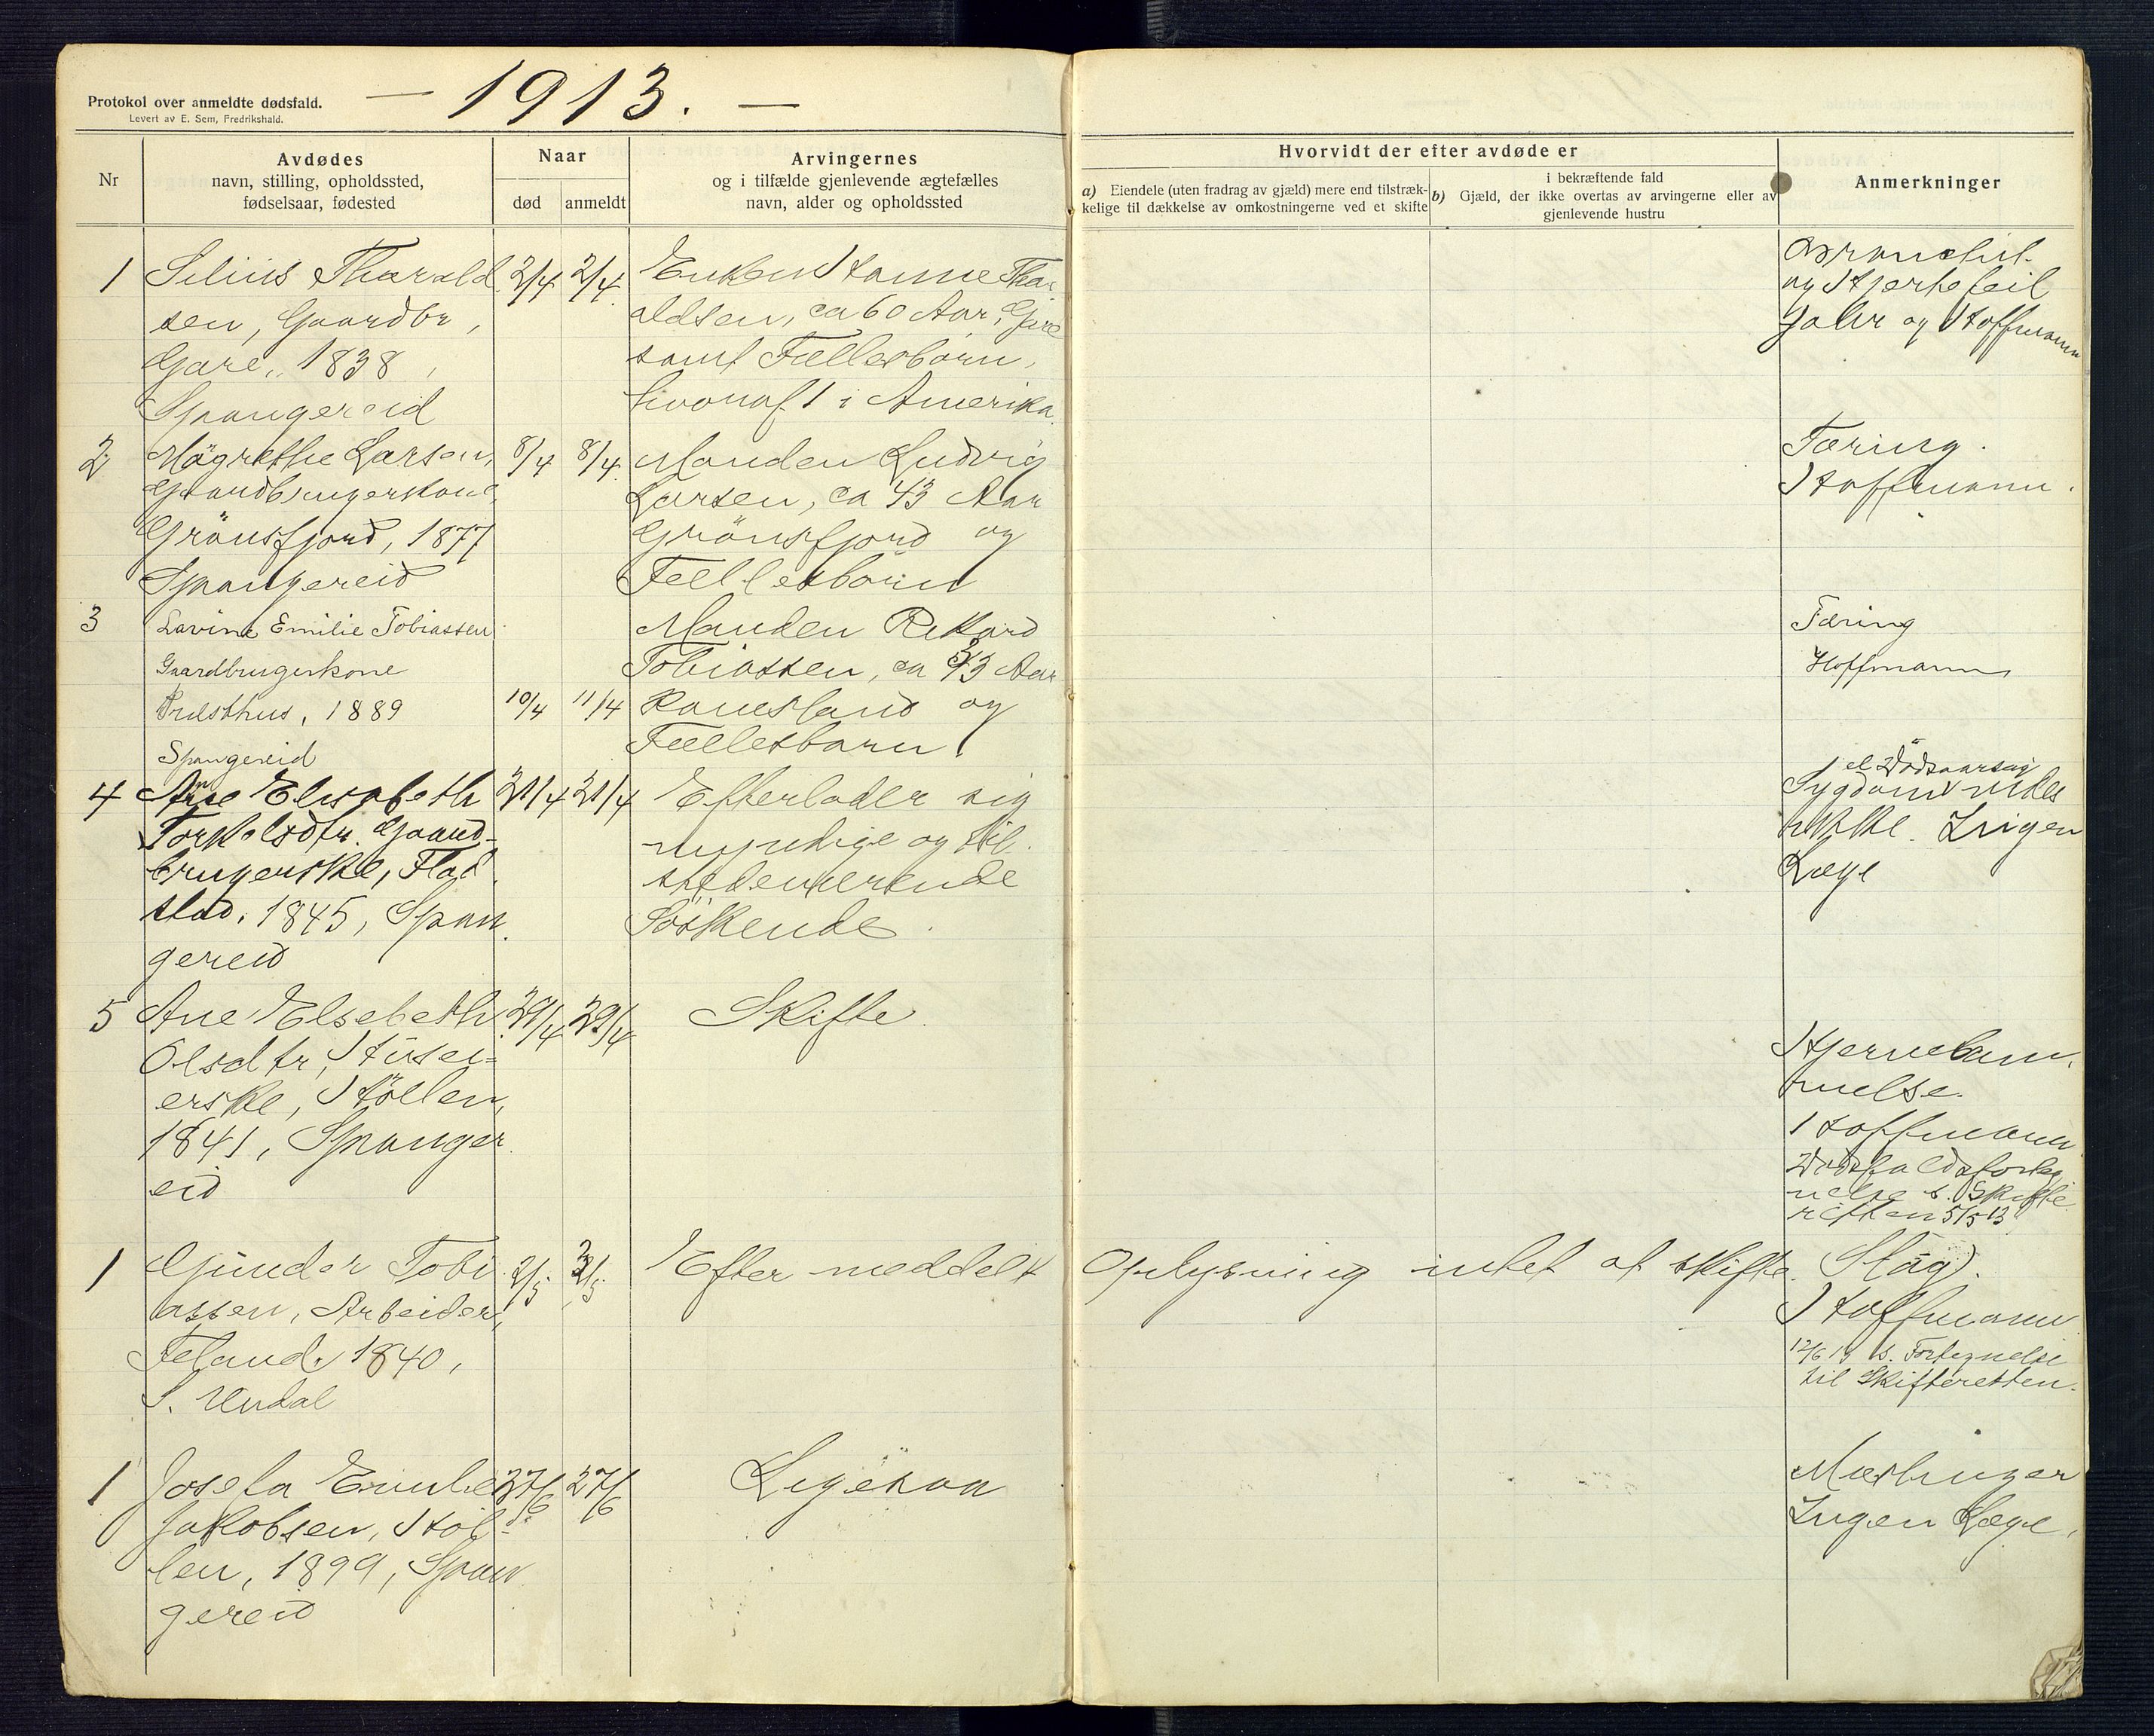 Protokol over anmeldte dødsfald.
Levert av E. Sem, Fredrikshald.
— 1913. —
Nr
Avdødes
navn, stilling, opholdssted,
fødselsaar, fødested
Naar
død
anmeldt
Arvingernes
og i tilfælde gjenlevende ægtefælles
navn, alder og opholdssted
Hvorvidt der efter avdøde er
a) Eiendele (uten fradrag av gjæld) mere end tilstræk-
kelige til dækkelse av omkostningerne ved et skifte
i bekræftende fald
b) Gjæld, der ikke overtas av arvingerne eller av
gjenlevende hustru
Anmerkninger
1
Selius Tharald
sen, Gaardbr,
Gare, 1838,
Spangereid
2/4
2/4
Enken Hanne Thar
aldsen, ca 60 Aar, Gare
samt Fællesbørn,
hvoraf 1 i Amerika.
og Hjertefeil
Jahr og Hoffmann
2
Mägrethe Larsen,
Gaardbrugerkone
Grönsfjord, 1877
Spangereid
8/4
8/4
Manden Ludvig
Larsen, ca 43 Aar
Grönsfjord og
Fællesbörn
Tæring.
Hoffmann.
3
Lavine Emilie Tobiassen
Gaardbrugerkone
Præsthus, 1889
Spangereid
10/4
11/4
Manden Rikard
Tobiassen, ca 33 Aar
Ramsland og
Fællesbarn.
Tæring
Hoffmann
4
Ane Elisabeth
Torkelsdtr. Gaard-
brugerske, Flad
stad, 1845, Span
gereid
21/4
21/4
Efterlader sig
myndige og til-
stedeværende
Söskende.
el Dödsaarsag
Sygdom vides
ikke. Ingen
Læge
5
Ane Elsebeth
Olsdtr, Husei-
erske, Höllen,
1841, Spanger
eid
29/4
29/4
Skifte
Hjernebetæn-
nelse.
Hoffmann
Dödsfaldsforteg
nelse s. Skifte
retten 5/5 13
1
Gunder Tobi
assen, Arbeider,
Feland, 1840,
S. Undal
2/5
3/5
Efter meddelt Oplysning intet at skifte.
Slag.
Hoffmann
12/6 13 s. Fortegnelse
til Skifteretten.
1
Josefa Emilie
Jakobsen, Höl-
len, 1899, Span
gereid
27/6
27/6
Ligesaa
Mæslinger
Ingen Læge.